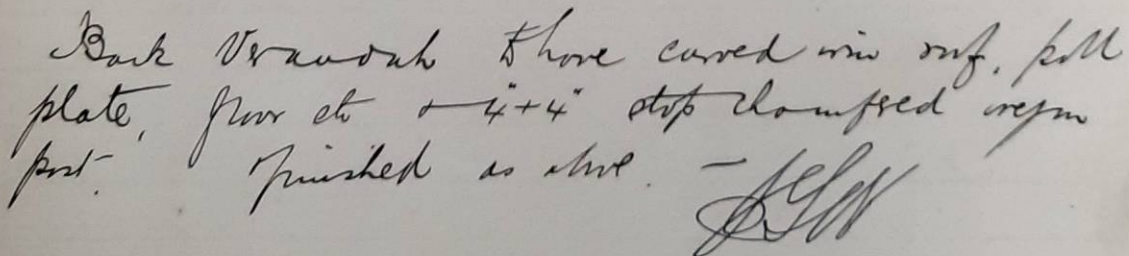 Back Verandah to have curved iron roof, pole
plate, floor etc & 4" + 4" stop chamfered oregon
post. Finished as above. —